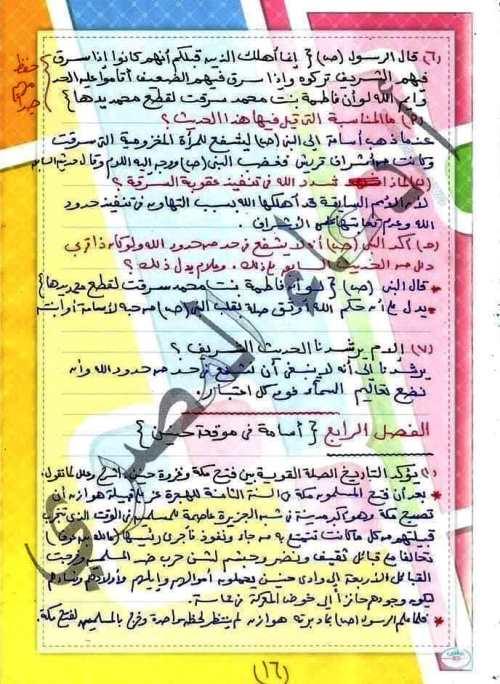 (٦) قال الرسول (ص) { إنما أهلك الذين قبلكم أنهم كانوا إذا سرق
فيهم الشريف تركوه وإذا سرق فيهم الضعيف أقاموا عليه الحد
وايم الله لو أن فاطمة بنت محمد سرقت لقطع محمد يدها }
حفظ
(٢) ما المناسبة التى قيل فيها هذا الحديث ؟
عندما ذهب أسامة إلى النبى (ص) ليشفع للمرأة المخزومية التى سرقت
وكانت من أشراف قريش فغضب النبى (ص) ووجه إليه اللوم وقال
لماذا تشدد الله فى تنفيذ عقوبة السرقة ؟
لأن الأمم السابقة قد أهلكها الله بسبب التهاون فى تنفيذ حدود
الله وعدم على الأشراف .
(ص) أنه لا يشفع فى حد من حدود الله ولو كان ذا قربى
دلل من الحديث السابق على ذلك . وعلام يدل ذلك ؟
* قال النبى (ص) { لو أن فاطمة بنت محمد سرقت لقطع محمد يدها }
* يدل على أن حكم الله أوثق صلة بقلب النبى (ص) من حبه لأسامة أو
(٧) إلام يرشدنا الحديث الشريف ؟
يرشدنا إلى أنه لا ينبغى أن نشفع فى حد من حدود الله وأن
نضع تعاليم السماء فوق كل اعتبار .
الفصل الرابع { أسامة فى موقعة حنين }
(١) يؤكد التاريخ الصلة القوية بين فتح مكة وغزوة حنين . اشرح وعلل لما تقول .
* بعد أن فتح المسلمون مكة فى السنة الثامنة للهجرة عز على قبيلة هوازن أن
تصبح مكة وهى أكبر مدينة فى شبه الجزيرة عاصمة للمسلمين فى الوقت الذى
قبيلتهم من كل ما كانت تتمتع به من جاه ونفوذ فأجرى رئيسها (مالك بن عوف)
تحالفا مع قبائل ثقيف ونضر وجشم لشن حرب ضد المسلمين وخرجت
القبائل الأربعة إلى وادى حنين يحملون أموالهم وإبلهم وأولادهم ونساءهم
ليكون وجودهم حافزا إلى خوض المعركة فى حماسة .
* فلما علم الرسول (ص) بما دبرته هوازن لم ينتظر لحظة واحدة وخرج بالمسلمين لفتح مكة .
(١٦)